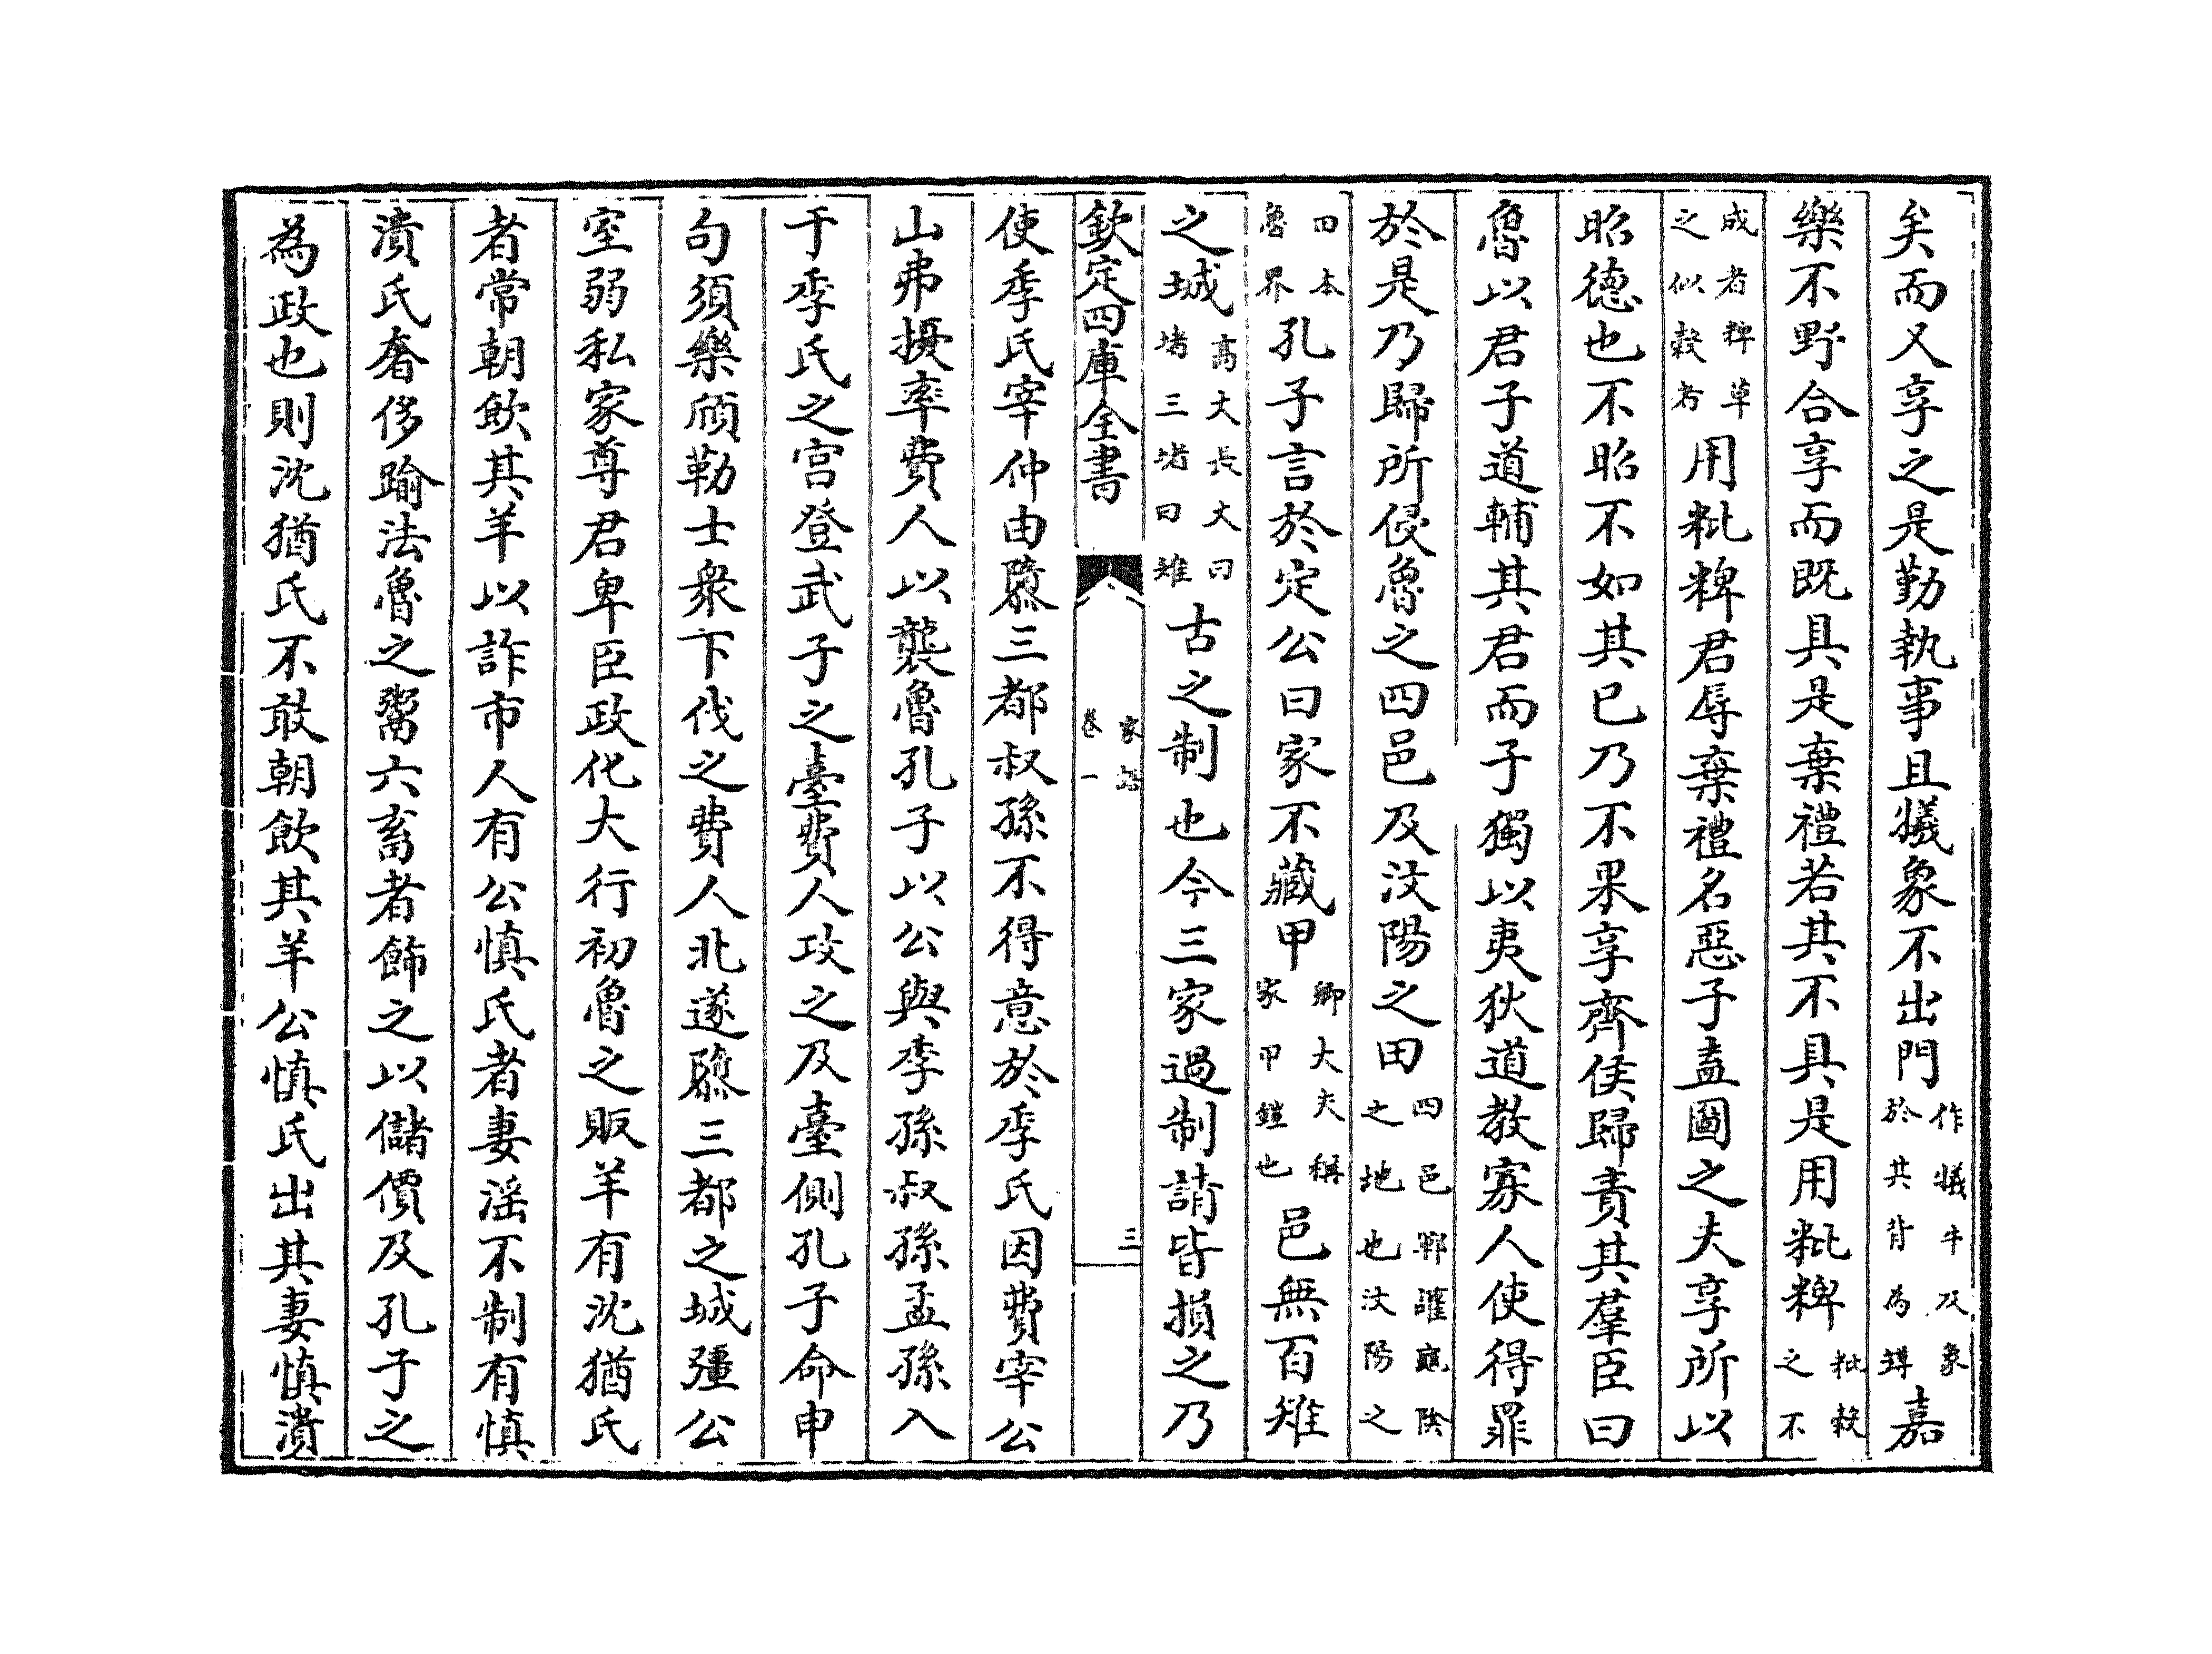 矣而又享之是勤執事且犠象不出門作犠牛及象於其背為罇嘉
樂不野合享而既具是棄禮若其不具是用粃粺粃穀之不
成者粺草之似穀者用粃粺君辱棄禮名惡子盍圖之夫享所以
昭德也不昭不如其已乃不果享齊侯歸責其羣臣曰
魯以君子道輔其君而子獨以夷狄道教寡人使得罪
於是乃歸所侵魯之四邑及汶陽之田四邑鄆讙龜陰之地也汶陽之
田本魯界孔子言於定公曰家不藏甲卿大夫稱家甲鎧也邑無百雉
之城高丈長丈曰堵三堵曰雉古之制也今三家過制請皆損之乃
欽定四庫全書
家語
卷一
三
使季氏宰仲由隳三都叔孫不得意於季氏因費宰公
山弗擾率費人以襲魯孔子以公與季孫叔孫孟孫入
于季氏之宮登武子之臺費人攻之及臺側孔子命申
句須樂頎勒士衆下伐之費人北遂隳三都之城彊公
室弱私家尊君卑臣政化大行初魯之販羊有沈猶氏
者常朝飲其羊以詐市人有公慎氏者妻淫不制有慎
潰氏奢侈踰法魯之鬻六畜者飾之以儲價及孔子之
為政也則沈猶氏不敢朝飲其羊公慎氏出其妻慎潰